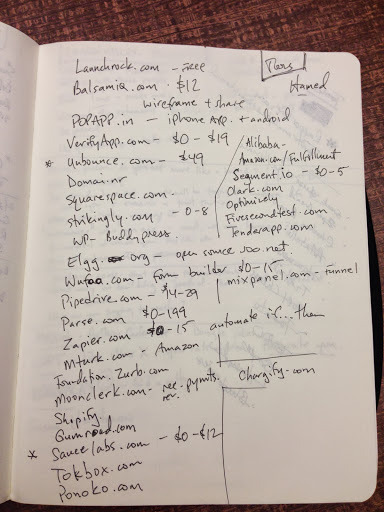 Launchrock.com - Free
Balsamiq.com - $12
wireframe + share
POPAPP.in - iphone App. + android
VerifyApp.com - $0 - $19
* Unbounce.com - $49
Domai.nr
Squarespace.com -
Strikingly.com - 0-8
WP - Buddypress.
Elgg.org - open source
Wufoo.com - form builder $0-15
Pipedrive.com - $14-29
Parse.com $0-199
Zapier.com $0-15 automate if...then
Mturk.com - Amazon
Foundation.Zurb.com
Moonclerk.com - rec. pymts.
Shopify
Gumroad.com
* Saucelabs.com - $0-$12
Tokbox.com
Ponoko.com
Hamed
Alibaba-
Amazon.com/Fulfillment
Segment.io - $0-5
Olark.com
Optimizely
Fivesecondtest.com
Tenderapp.com
mixpanel.com - funnel
Chargify.com